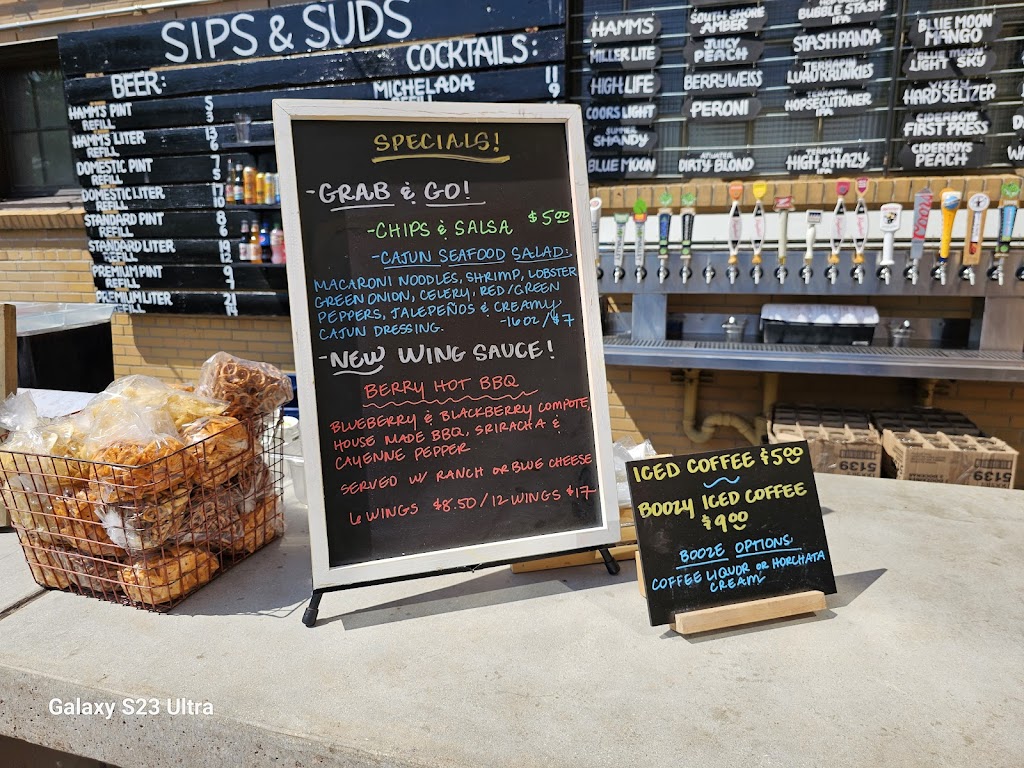 SIPS & SUDS
BEER:
HAMM'S PINT
REFILL
HAMM'S LITER
REFILL
DOMESTIC PINT
REFILL
DOMESTIC LITER
REFILL
STANDARD PINT
REFILL
STANDARD LITER
REFILL
PREMIUM PINT
REFILL
PREMIUM LITER
REFILL
COCKTAILS:
MICHELADA 11
9
HAMM'S
MILLER LITE
HIGH LIFE
COORS LIGHT
SHANDY
BLUE MOON
SOUTH SHORE
AMBER
JUICY
PEACH
BERRYWEISS
PERONI
DIRTY BLOND
BUBBLE STASH
IPA
STASH PANDA
LUAU KRUNKLES
HOPSECUTIONER
IPA
HIGH & HAZY
BLUE MOON
MANGO
LIGHT SKY
HARD SELTZER
CIDERBOYS
FIRST PRESS
CIDERBOYS
PEACH
SPECIALS!
-GRAB & GO!
-CHIPS & SALSA $5.00
-CAJUN SEAFOOD SALAD:
MACARONI NOODLES, SHRIMP, LOBSTER
GREEN ONION, CELERY, RED/GREEN
PEPPERS, JALEPEÑOS & CREAMY
CAJUN DRESSING. -16 OZ/$7
-NEW WING SAUCE!
BERRY HOT BBQ
BLUEBERRY & BLACKBERRY COMPOTE,
HOUSE MADE BBQ, SRIRACHA &
CAYENNE PEPPER
SERVED W/ RANCH OR BLUE CHEESE
6 WINGS $8.50/12 WINGS $17
ICED COFFEE $5.00
BOOZY ICED COFFEE
$9.00
BOOZE OPTIONS:
COFFEE LIQUOR OR HORCHATA
CREAM
5139
5139
Galaxy S23 Ultra